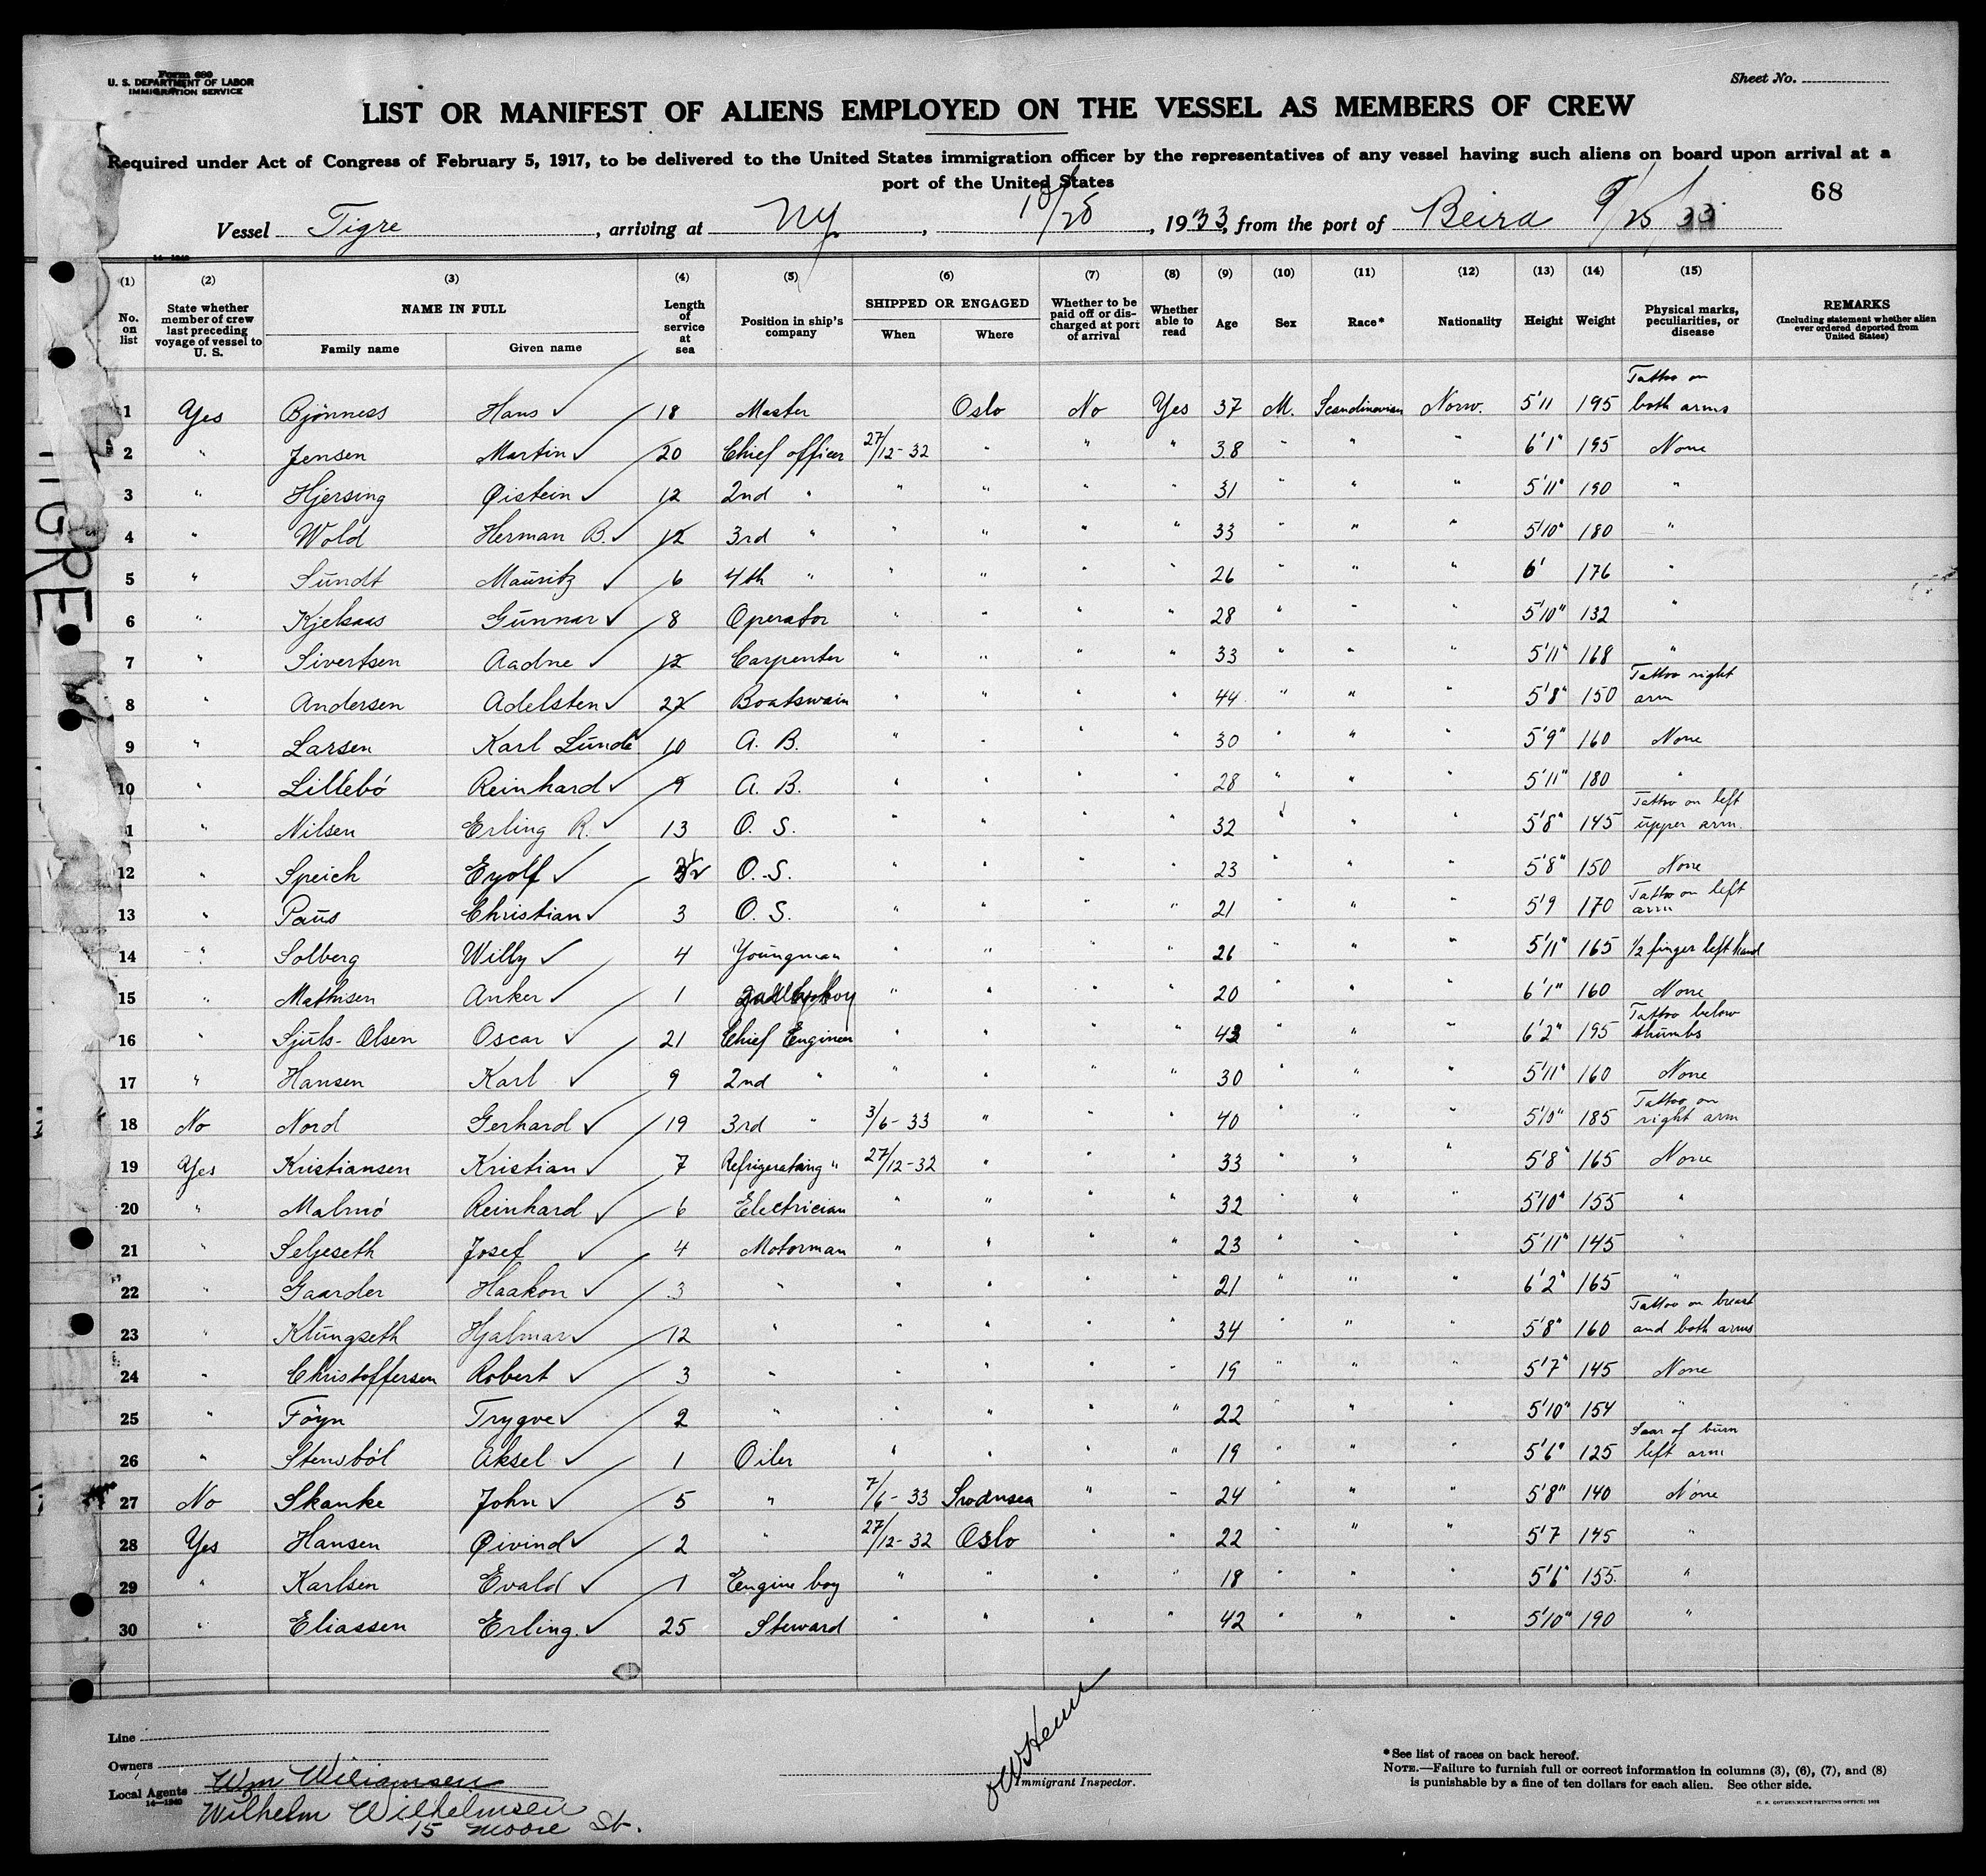 Form 680
U. S. DEPARTMENT OF LABOR
IMMIGRATION SERVICE
Sheet No.
LIST OR MANIFEST OF ALIENS EMPLOYED ON THE VESSEL AS MEMBERS OF CREW
Required under Act of Congress of February 5, 1917, to be delivered to the United States immigration officer by the representatives of any vessel having such aliens on board upon arrival at a
port of the United States
68
Vessel Tigre, arriving at NY, 10/28, 1933, from the port of Beira 9/25/33
14—1940
(1) (2) (3) (4) (5) (6) (7) (8) (9) (10) (11) (12) (13) (14) (15)
No. on list | State whether member of crew last preceding voyage of vessel to U. S. | NAME IN FULL Family name Given name | Length of service at sea | Position in ship's company | SHIPPED OR ENGAGED When Where | Whether to be paid off or discharged at port of arrival | Whether able to read | Age | Sex | Race* | Nationality | Height | Weight | Physical marks, peculiarities, or disease | REMARKS (Including statement whether alien ever ordered deported from United States)
1 Yes Bjönness Hans ✓ 18 Master Oslo No Yes 37 M. Scandinavian Norw. 5'11 195 Tattoo on both arms
2 " Jensen Martin ✓ 20 Chief officer 27/12-32 " " " 38 " " " 6'1" 195 None
3 " Hjersing Øistein ✓ 12 2nd " " " " " 31 " " " 5'11" 190 "
4 " Wold Herman B. ✓ 12 3rd " " " " " 33 " " " 5'10" 180 "
5 " Sundt Mauritz ✓ 6 4th " " " " " 26 " " " 6' 176 "
6 " Kjelsaas Gunnar ✓ 8 Operator " " " " 28 " " " 5'10" 132 "
7 " Sivertsen Aadne ✓ 12 Carpenter " " " " 33 " " " 5'11" 168 "
8 " Andersen Adelsten ✓ 22 Boatswain " " " " 44 " " " 5'8" 150 Tattoo right arm
9 " Larsen Karl Lunde 10 A. B. " " " " 30 " " " 5'9" 160 None
10 " Lillebö Reinhard ✓ 9 A. B. " " " " 28 " " " 5'11" 180 "
1 " Nilsen Erling R. ✓ 13 O. S. " " " " 32 " " " 5'8" 145 Tattoo on left upper arm.
12 " Speich Eyolf ✓ 3½ O. S. " " " " 23 " " " 5'8" 150 None
13 " Paus Christian ✓ 3 O. S. " " " " 21 " " " 5'9 170 Tattoo on left arm
14 " Solberg Willy ✓ 4 Youngman " " " " 26 " " " 5'11" 165 1/2 finger left hand
15 " Mathisen Anker ✓ 1 galleyboy " " " " 20 " " " 6'1" 160 None
16 " Sjuls-Olsen Oscar ✓ 21 Chief Engineer " " " " 43 " " " 6'2" 195 Tattoo below thumbs
17 " Hansen Karl ✓ 9 2nd " " " " " 30 " " " 5'11" 160 None
18 No Nord Gerhard ✓ 19 3rd " 3/6-33 " " " 40 " " " 5'10" 185 Tattoo on right arm
19 Yes Kristiansen Kristian ✓ 7 Refrigerating " 27/12-32 " " " 33 " " " 5'8" 165 None
20 " Malmö Reinhard ✓ 6 Electrician " " " " 32 " " " 5'10" 155 "
21 " Seljeseth Josef ✓ 4 Motorman " " " " 23 " " " 5'11" 145 "
22 " Gaarder Haakon ✓ 3 " " " " " 21 " " " 6'2" 165 "
23 " Klungseth Hjalmar ✓ 12 " " " " " 34 " " " 5'8" 160 Tattoo on breast and both arms
24 " Christoffersen Robert ✓ 3 " " " " " 19 " " " 5'7" 145 None
25 " Föyn Trygve ✓ 2 " " " " " 22 " " " 5'10" 154 "
26 " Stensböl Aksel ✓ 1 Oiler " " " " 19 " " " 5'6" 125 Scar of burn left arm
27 No Skanke John ✓ 5 " 7/6-33 Swansea " " 24 " " " 5'8" 140 None
28 Yes Hansen Øivind ✓ 2 " 27/12-32 Oslo " " 22 " " " 5'7 145 "
29 " Karlsen Evald ✓ 1 Engine boy " " " " 18 " " " 5'6" 155. "
30 " Eliassen Erling. ✓ 25 Steward " " " " 42 " " " 5'10" 190 "
TIGRE
Line
Owners
Local Agents Wm Wiliamsen
14—1940
Wilhelm Wilhelmsen
15 Moore St.
Immigrant Inspector.
*See list of races on back hereof.
NOTE.—Failure to furnish full or correct information in columns (3), (6), (7), and (8)
is punishable by a fine of ten dollars for each alien. See other side.